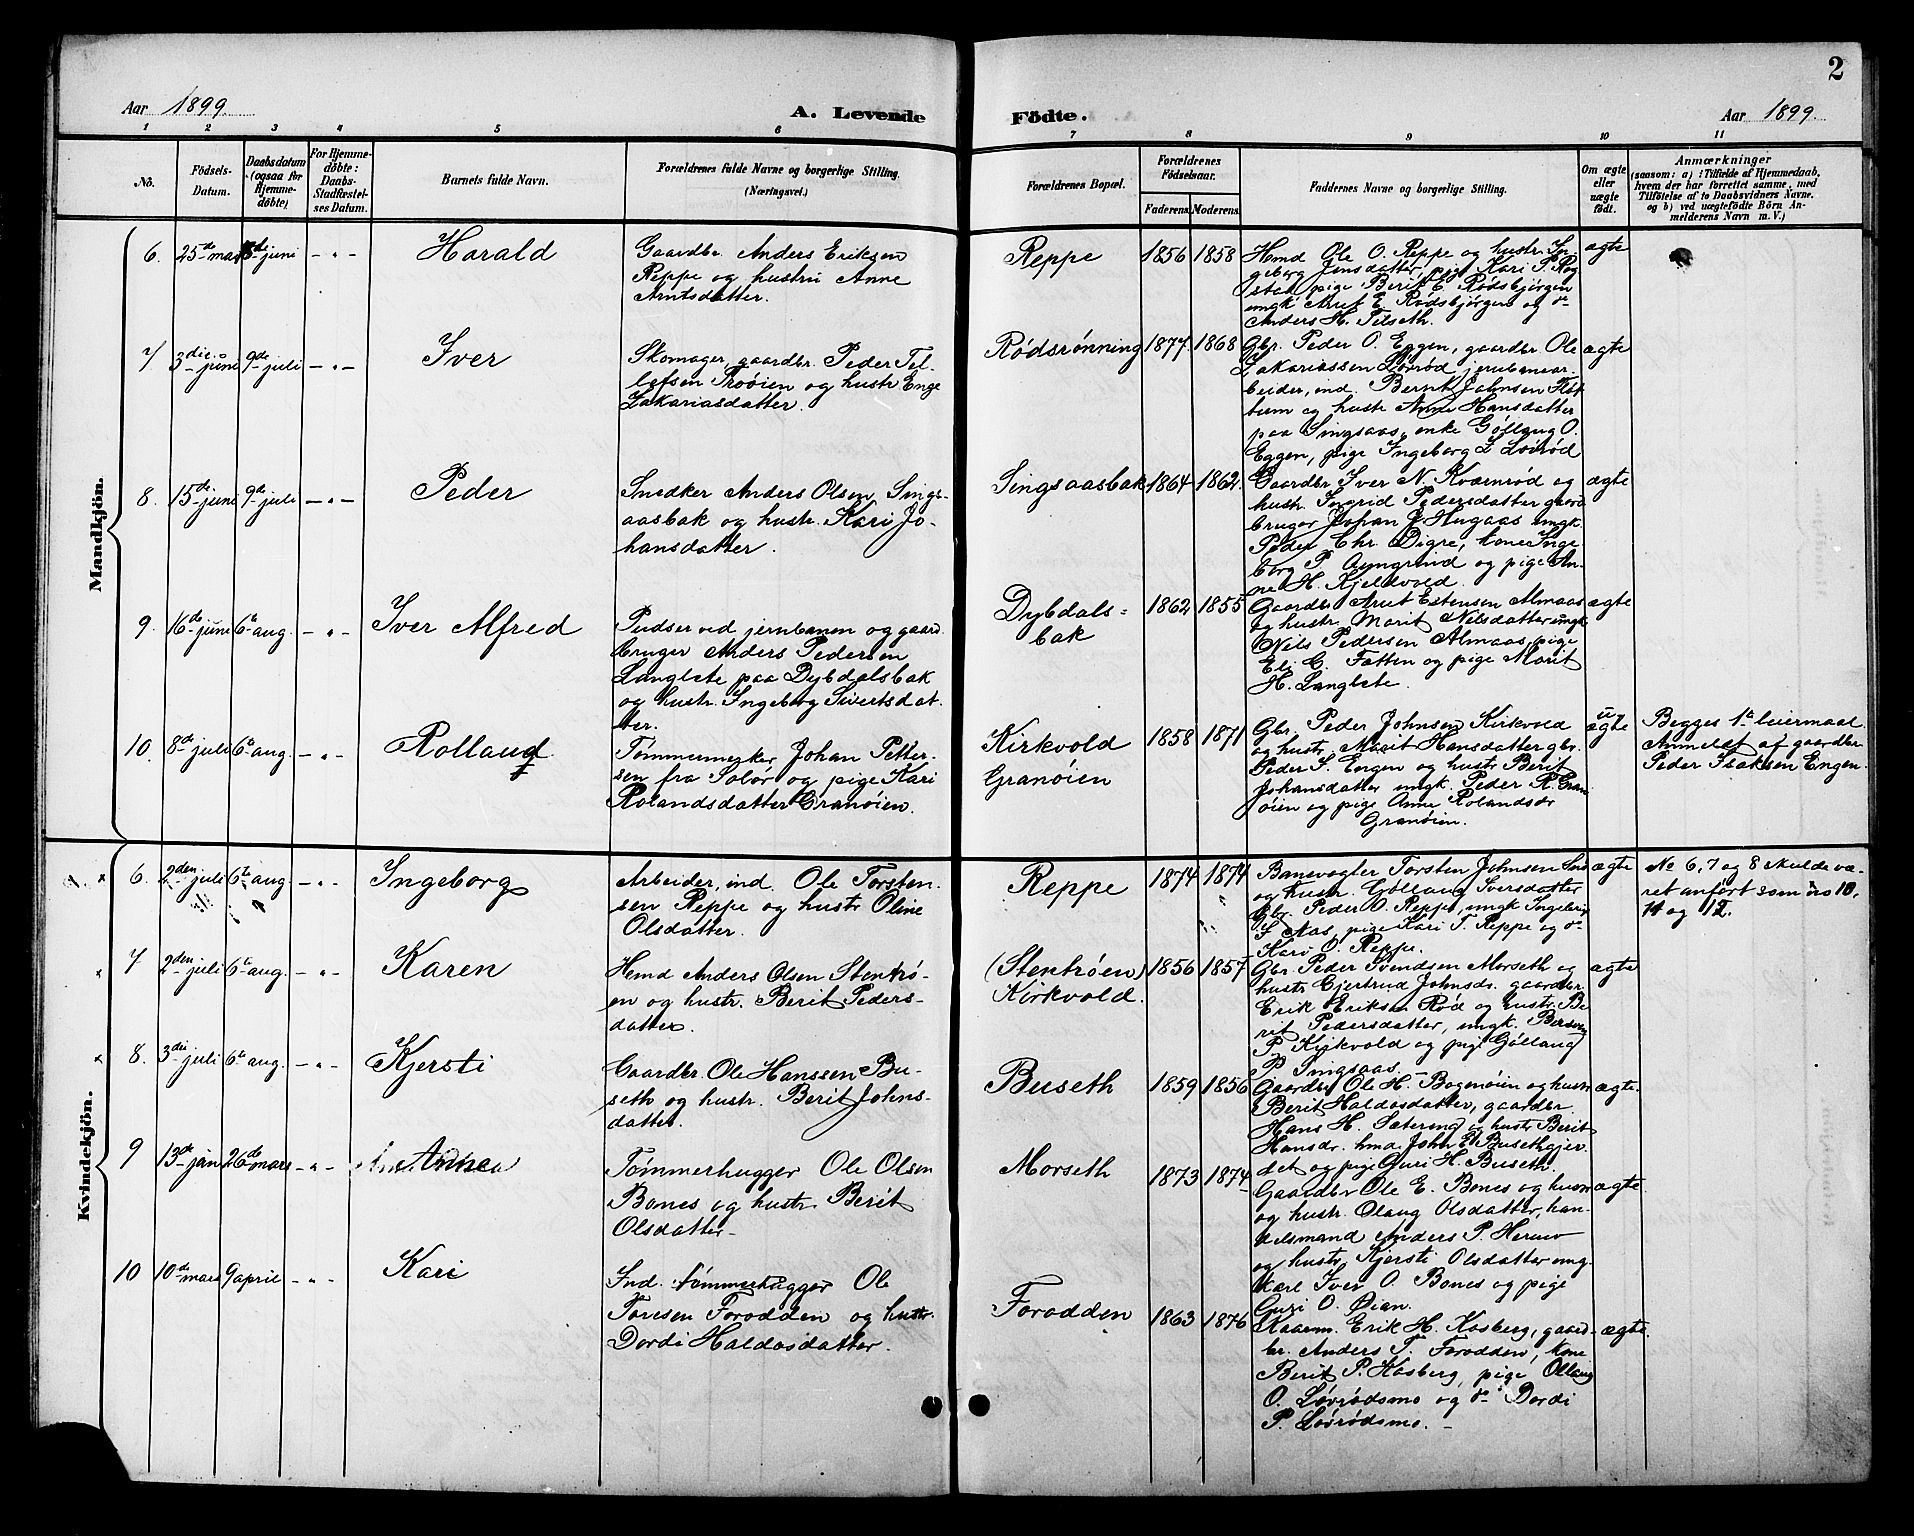 2
Aar 1899.
A. Levende
Födte.
Aar 1899.
1 2 3 4 5 6 7 8 9 10 11
No.
Födsels-
Datum.
Daabsdatum
(ogsaa for
Hjemme-
döbte)
For Hjemme-
döbte:
Daabs-
Stadfæstel-
ses Datum.
Barnets fulde Navn.
Forældrenes fulde Navne og borgerlige Stilling.
(Næringsvei.)
Forældrenes Bopæl.
Forældrenes
Födselsaar.
Faderens. Moderens.
Faddernes Navne og borgerlige Stilling.
Om ægte
eller
uægte
födt.
Anmærkninger
(saasom: a) i Tilfælde af Hjemmedaab,
hvem der har forrettet samme, med
Tilföielse af to Daabsvidners Navne,
og b) ved uægtefödte Börn An-
melderens Navn m. V.)
Mandkjön.
6. 25de mai juni - " - Harald
Gaardbr. Anders Eriksen
Reppe og hustru Anne
Arntsdatter.
Reppe 1856 1858
Hmd Ole O. Reppe og hustr. In-
geborg Jensdatter, pige Kari T. Rog
stad, pige Berit E. Rødsbjørgen
ungk Arnt E. Rødsbjørgen og do
Anders H. Tilseth.
ægte
7 3die juni 9de juli - " - Iver
Skomager, gaardbr. Peder Tel-
lefsen Trøøien og hustr Enge
Zakariasdatter.
Rødsrønning 1877. 1868
Gbr. Peder O. Eggen, gaardbr Ole
Zakariassen Løvrød, jernbanear-
beider, ind. Bernt Johnsen
og hustr Anne Hansdatter
paa Singsaas, enke Gøllaug O.
Eggen, pige Ingeborg Z Løvrød
ægte
8. 15de juni 9de juli - " - Peder
Snedker Anders Olsen Sings-
aasbak og hustr. Kari Jo-
hansdatter.
Singsaasbak 1864 1862.
Gaardbr Iver N. Kværnrød og
hustr. Ingrid Pedersdatter gaard
bruger Johan J Hugaas ungk.
Peder Chr. Digre, kone Inge-
borg P. Aungrind og pige An-
ne H. Kjeldvold.
ægte
9. 16de juni 6te aug. - " - Iver Alfred
Pudser ved jernbanen og gaard
bruger Anders Pedersen
Langlete paa Dybdalsbak
og hustr. Ingeborg Sivertsdat-
ter.
Dybdals-
bak
1862 1855
Gaardbr Arnt Estensen Almaas
og hustr. Marit Nilsdatter ungk
Nils Pedersen Almaas, pige
Eli C. Fatten og pige Marit
H. Langlete.
ægte
10. 8de juli 6te aug. - " - Rolland
Tømmermerker Johan Petter-
sen fra Solør og pige Kari
Rolandsdatter Granøien.
Kirkvold
Granøien
1858 1871
Gbr. Peder Johnsen Kirkvold
og hustr. Marit Hansdatter gbr.
Peder I. Engen og hustr Berit
Johansdatter ungk. Peder R. Gran
øien og pige Anne Rolandsdr
Granøien.
u
ægte
Begges 1te leiermaal
Anmeldt af gaardbr
Peder Isaksen Engen.
Kvindekjön.
6. 2den juli 6te aug. - " - Ingeborg
Arbeider, ind. Ole Torsten-
sen Reppe og hustr Oline
Olsdatter.
Reppe 1874 1874
Banevogter Torsten Johnsen
og hustr. Gøllaug Iversdatter
Gbr. Peder O. Reppe, ungk Ingebrig
I Aas, pige Kari T. Reppe og do
Kari O. Reppe.
ægte
No 6, 7 og 8 skulde væ-
ret anført som no 10,
11 og 12.
7 2den juli 6te aug. - " - Karen
Hmd Anders Olsen Stentrø-
en og hustr. Berit Peders-
datter.
(Stentrøen)
Kirkvold.
1856 1857
Gbr. Peder Svendsen Morseth og
hustr Gjertrud Johnsdr. gaardbr.
Erik Eriksen Rød og hustr. Be-
rit Pedersdatter, ungk.
P. Kirkvold og pige Gøllaug
P Singsaas.
ægte
8. 3die juli 6te aug. - " - Kjersti
Gaardbr. Ole Hanssen Bu-
seth og hustr. Berit Johns-
datter.
Buseth 1859 1856
Gaardbr Ole H. Bogenøien og hustr
Berit Haldosdatter, gaardbr.
Hans H. Sætering og hustr Berit
Hansdr. hmd John E Busethgjer-
det og pige Guri H. Buseth.
ægte.
9 13de jan 26de mars - " - Anna
Tømmerhugger Ole Olsen
Bones og hustr Berit
Olsdatter
Morseth 1873 1874
Gaardbr Ole E. Bones og husn
og hustr. Olaug Olsdatter, han-
delsmand Anders P. Hermo
og hustr. Kjersti Olsdatter ung-
karl Iver O. Bones og pige
Guri O. Øian.
ægte
10 10de mars 9 april - " - Kari
Ind. tømmerhugger Ole
Toresen Forodden og hustr.
Dordi Haldosdatter.
Forodden 1863 1876
Kaarm. Erik H. Kosberg, gaard-
br. Anders T. Forodden, kone
Berit P. Kosberg, pige Ollaug
O. Løvrødsmo og do Dordi
P. Løvrødsmo.
ægte